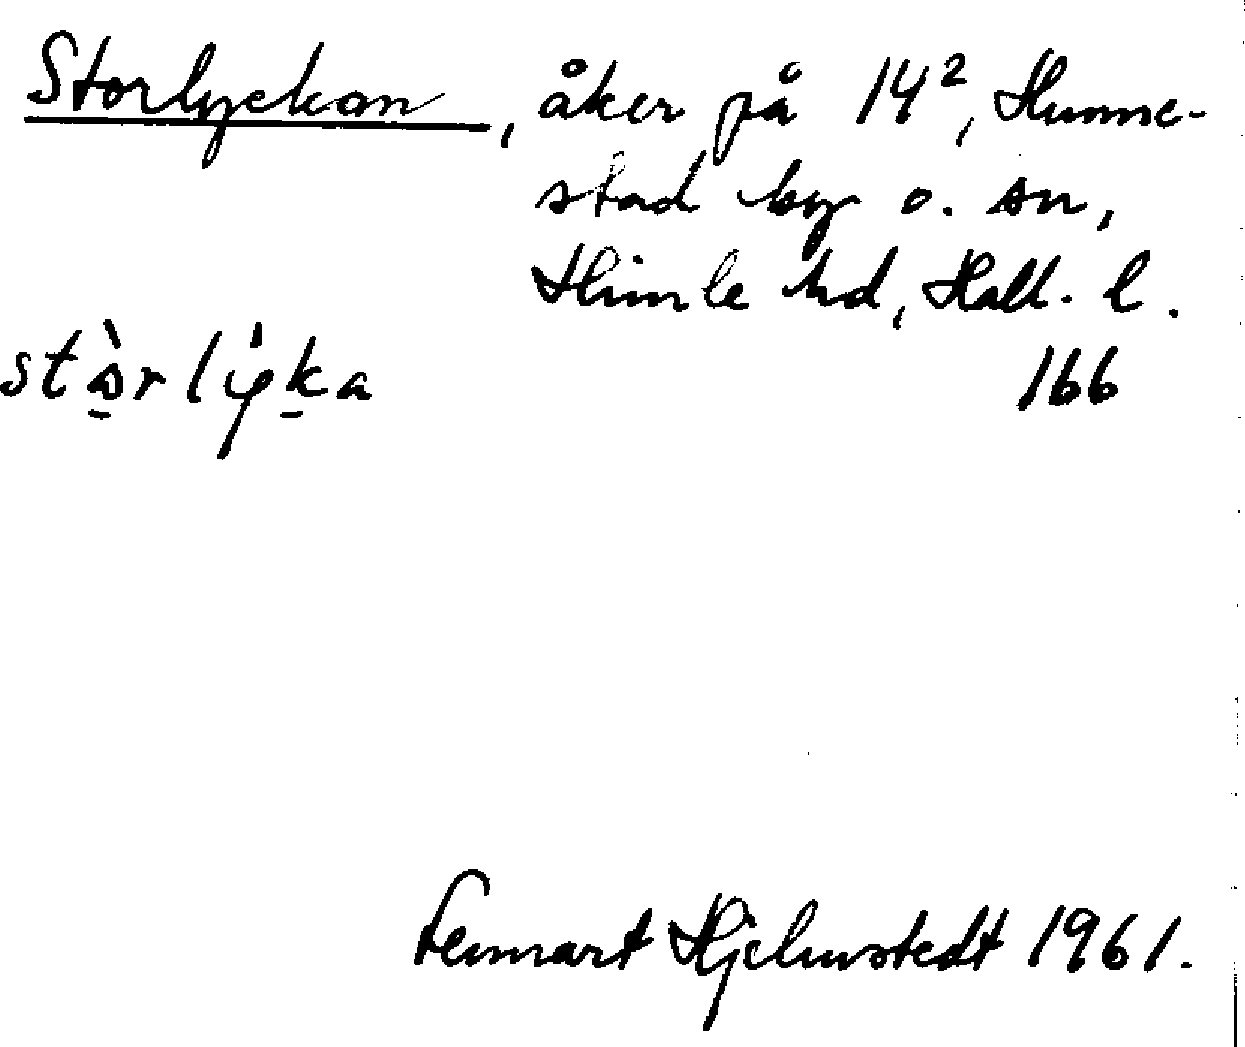 Storlyckan, åker på 14², Hunne-
stad by o. sn,
Himle hd, Hall. l.
166
Lennart Hjelmstedt 1961.